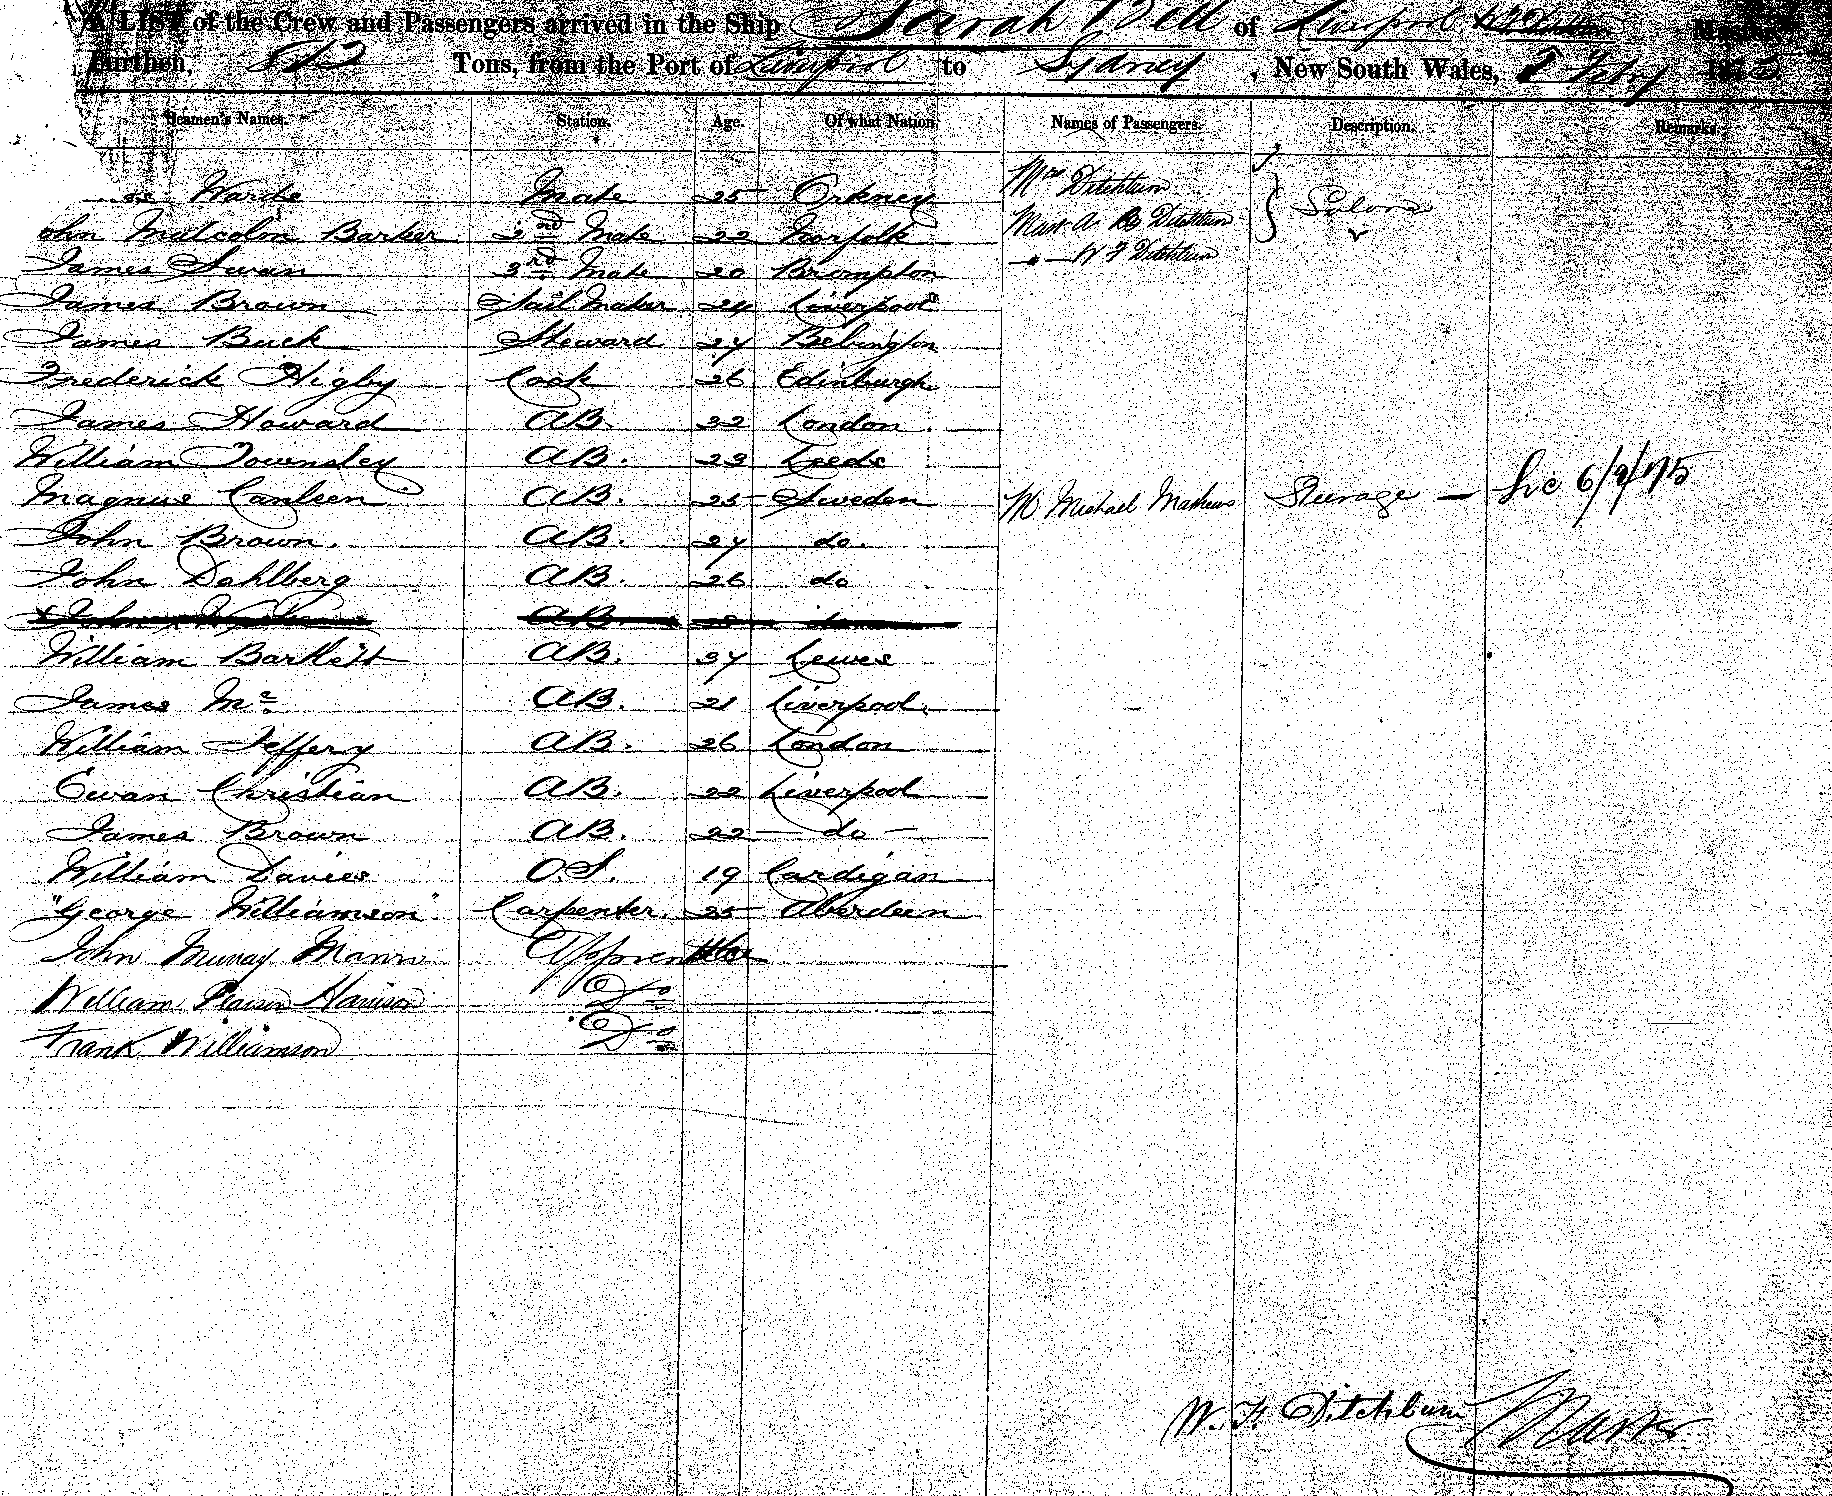 A LIST of the Crew and Passengers arrived in the Ship Sarah Bell of Liverpool
Burthen, Tons, from the Port of Liverpool to Sydney, New South Wales, 8 Feby
Seamen's Names. Station. Age. Of what Nation. Names of Passengers. Description. Remarks.
Warde Mate 25 Orkney Mrs Ditchburn
ohn Malcolm Barker 2nd Mate 22 Norfolk Mast A B Ditchburn Saloon
James Swan 3rd Mate 20 Brompton W F Ditchburn
James Brown Sail Maker 24 Liverpool
James Buck Steward 27 Bebington
Frederick Higby Cook 26 Edinburgh
James Howard AB. 22 London
William Townsley AB. 23 Leeds
Magnus Canleen AB. 25 Sweden Michael Mathews Steerage
John Brown. AB. 27 do.
John Dahlberg AB. 26 do
John AB do
William Bartlett AB. 37 Lewes
James Mc AB. 21 Liverpool
William Jeffery AB. 26 London
Ewan Christian AB. 22 Liverpool
James Brown AB. 22 do
William Davies O.S. 19 Cardigan
"George Williamson" Carpenter. 25 Aberdeen
John Murray Mann Apprentice
William Harrison Do
Frank Williamson Do
W. F. Ditchburn Master